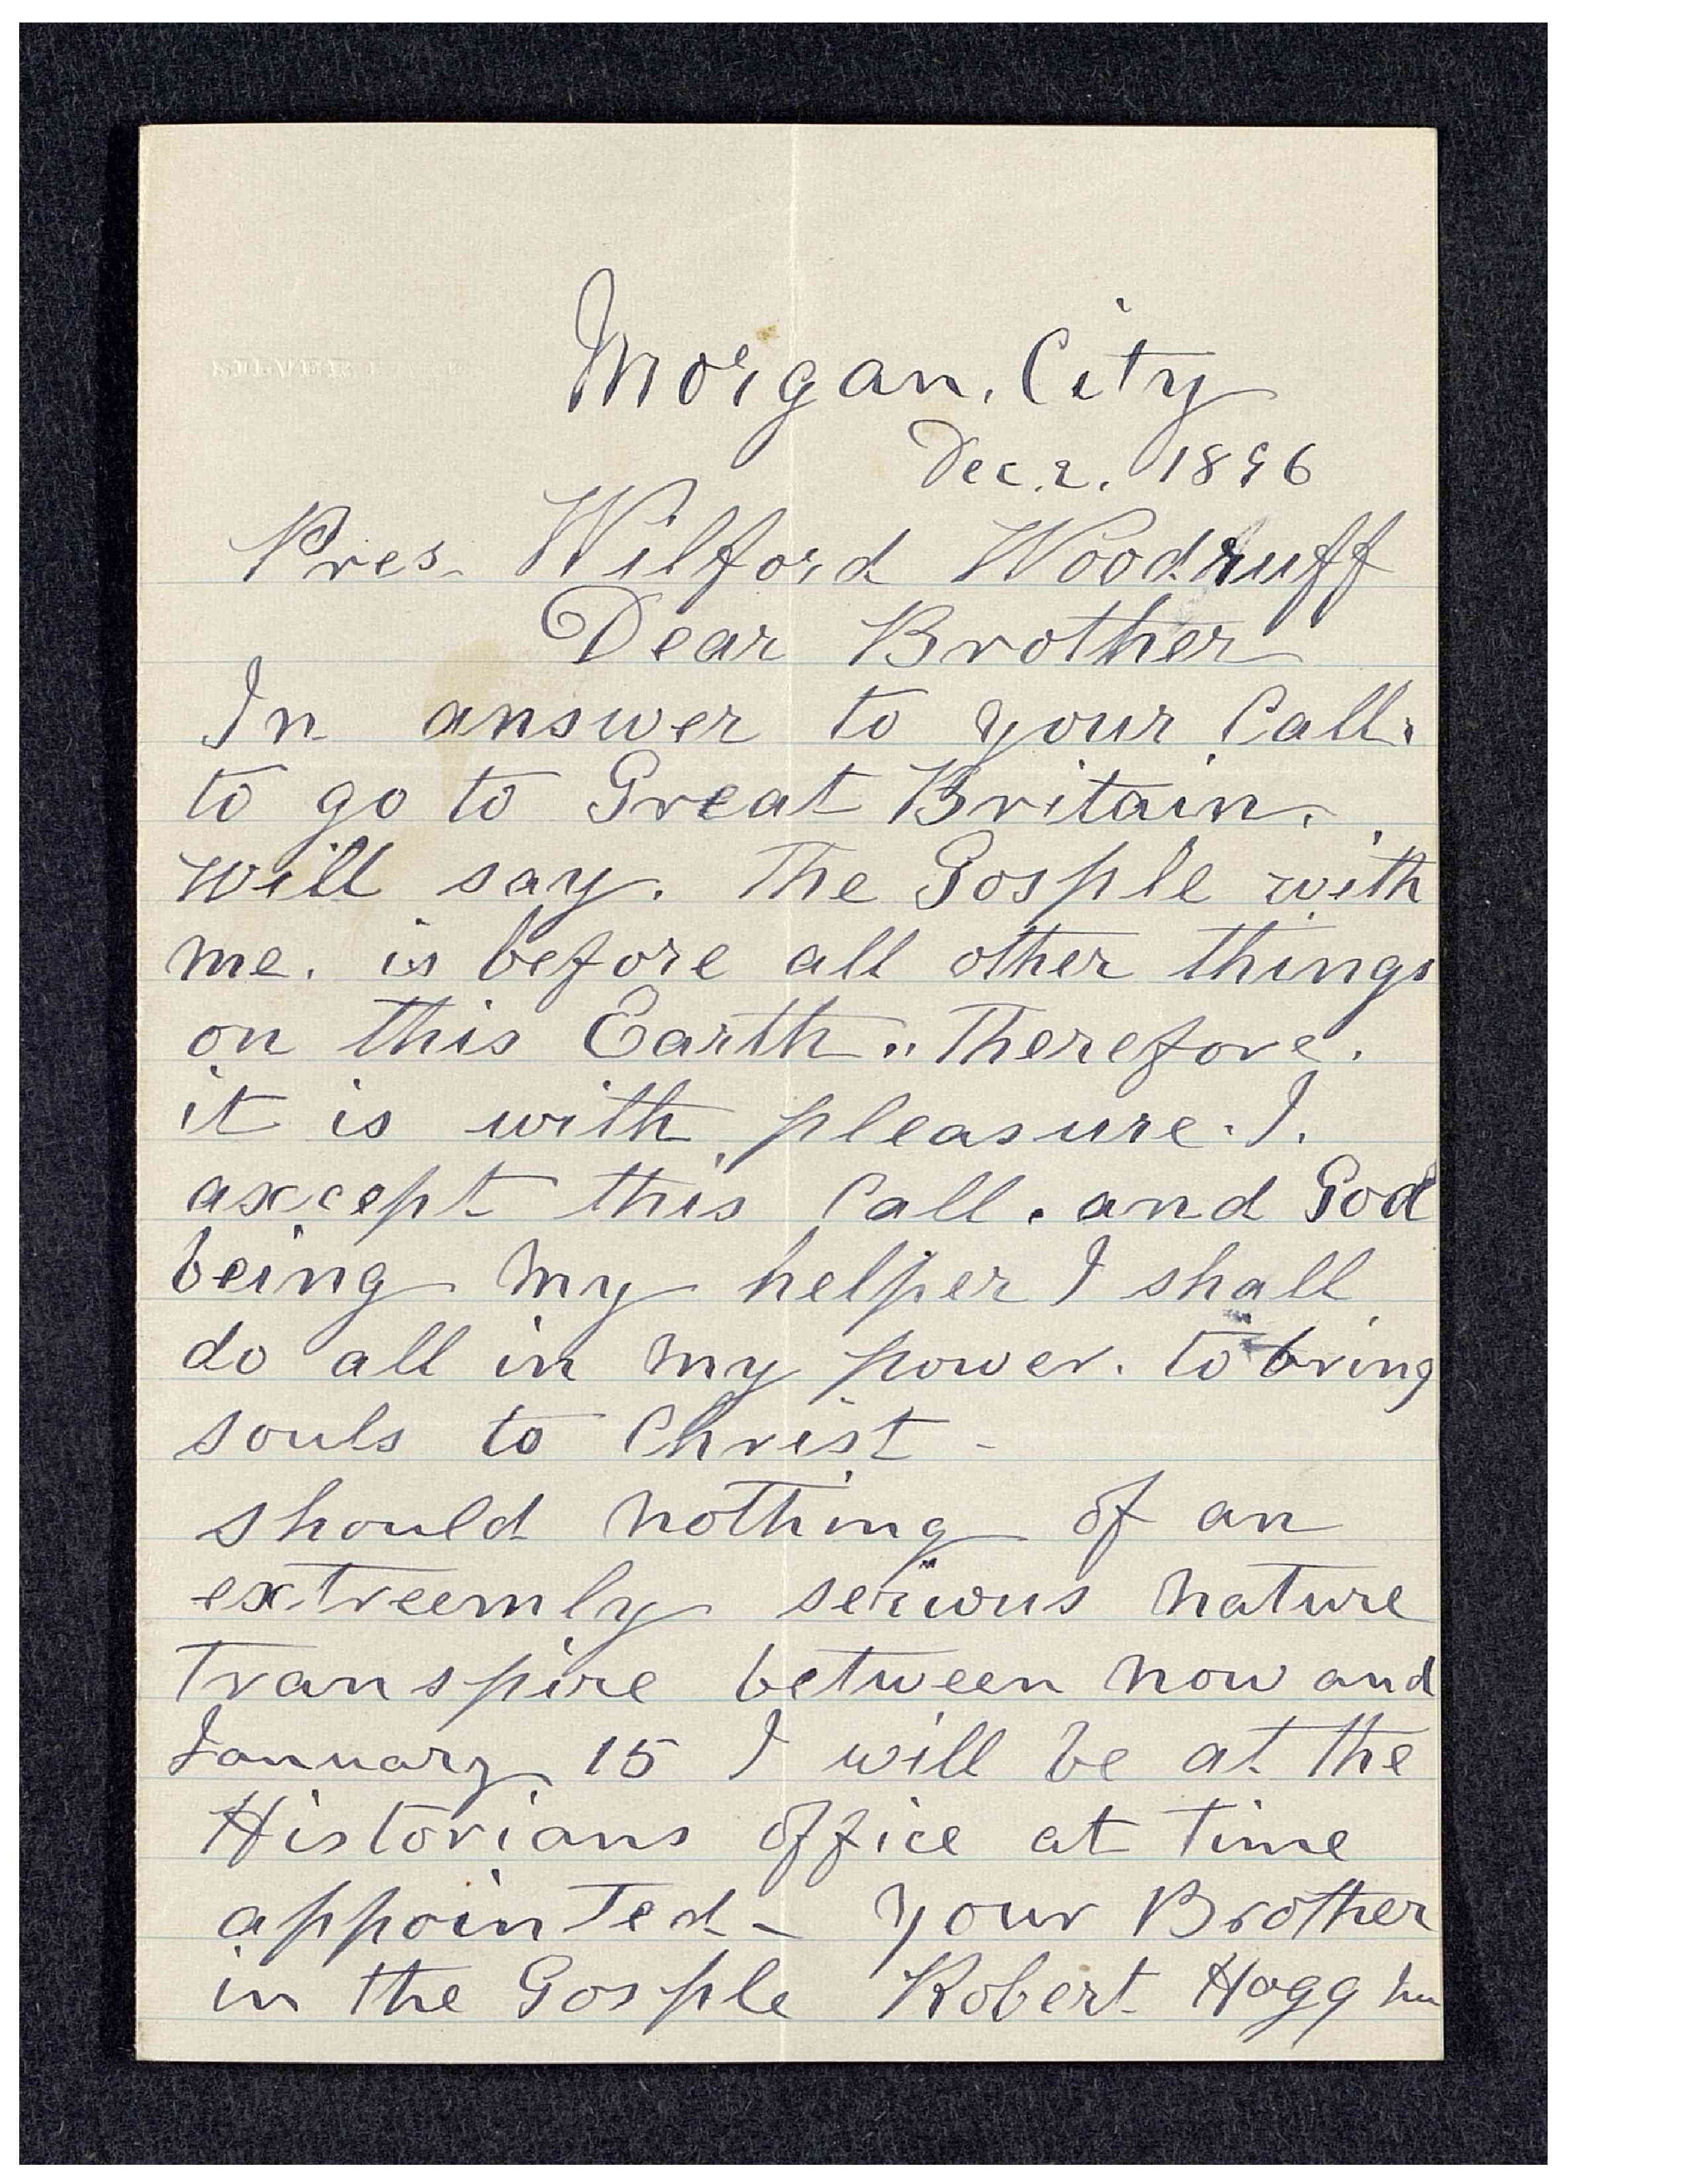 Morgan. City
Dec. 2. 1896
Pres. Wilford Woodruff
Dear Brother
In answer to your Call.
to go to Great Britain.
will say. The Gosple with
me. is before all other things
on this Earth.. Therefore.
it is with pleasure. I.
axcept this Call. and God
being my helper I shall
do all in my power. to bring
souls to Christ -
should nothing of an
extreemly serious nature
transpire between now and
January 15 I will be at the
Historians office at time
appointed - your Brother
in the Gosple Robert Hogg